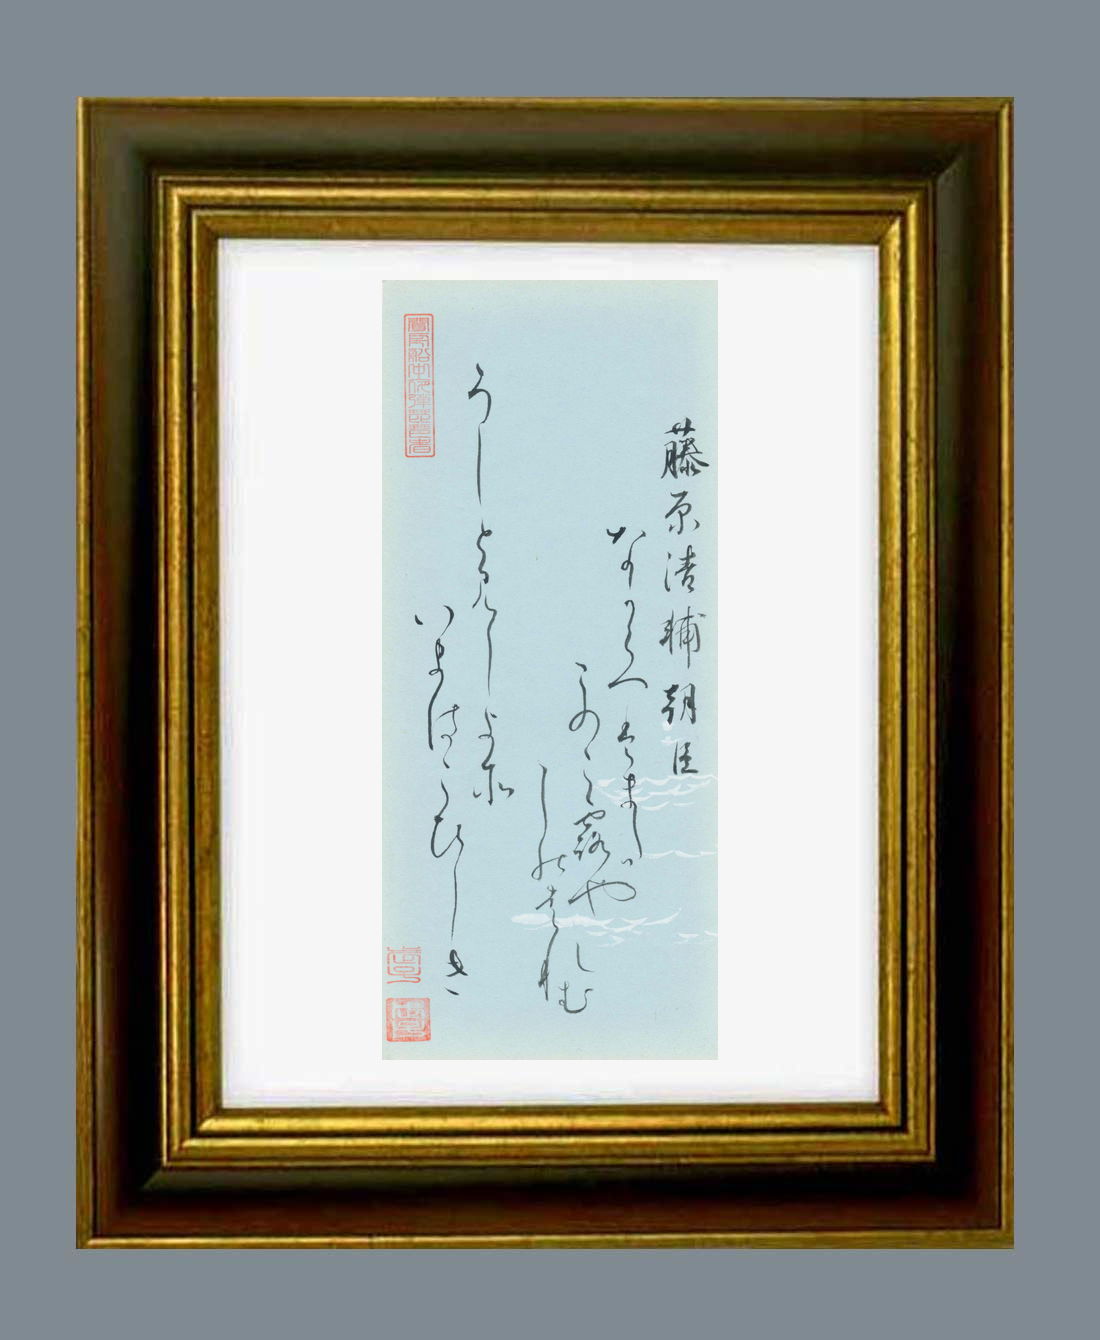 藤原清輔朝臣
なからへはまた
このこ露や
しのはれむ
うしと見しよそ
いまはこひしき